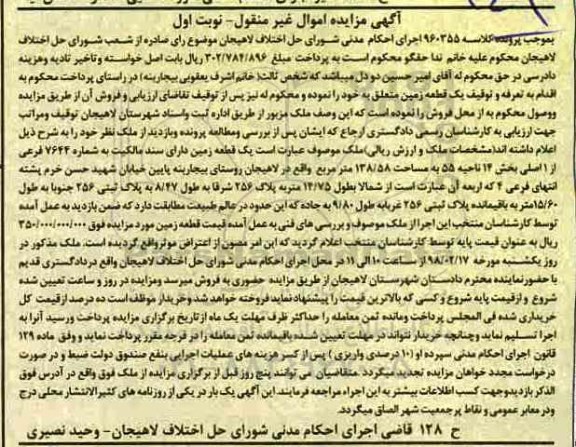 آگهی مزایده اموال غیر منقول- نوبت اول
بموجب پرونده کلاسه ۹۶۰۳۵۵ اجرای احکام مدنی شورای حل اختلاف لاهیجان موضوع رای صادره از شعب شورای حل اختلاف
لاهیجان محکوم علیه خانم ندا حقگو محکوم است به پرداخت مبلغ ۳۰۲/۷۸۴/۸۹۶ ریال بابت اصل خواسته وتاخیر تادیه وهزینه
دادرسی در حق محکوم له آقای امیر حسین دو دل میباشد که شخص ثالث( خانم اشرف یعقوبی بیجاربنه) در راستای پرداخت محکوم به
اقدام به تعرفه و توقیف یک قطعه زمین متعلق به خود را نموده و محکوم له نیز پس از توقیف تقاضای ارزیابی و فروش آن از طریق مزایده
ووصول محکوم به از محل فروش را نموده است که این وصف ملک مزبور از طریق اداره ثبت واسناد شهرستان لاهیجان توقیف ومراتب
جهت ارزیابی به کارشناسان رسمی دادگستری ارجاع که ایشان پس از بررسی ومطالعه پرونده وبازدید از ملک نظر خود را به شرح ذیل
اعلام داشته اند(مشخصات ملک و ارزش ریالی)ملک موصوف عبارت است یک قطعه زمین دارای سند مالکیت به شماره ۷۶۴۴ فرعی
از ۱ اصلی بخش ۱۴ ناحیه ۵۵ به مساحت ۱۳۸/۵۸ متر مربع واقع در لاهیجان روستای بیجاربنه پایین خیابان شهید حسن خرم پشته
انتهای فرعی ۴ که اربعه آن عبارت است از شمالا بطول ۱۴/۷۵ متربه پلاک ۲۵۶ شرقا به طول ۸/۴۷ به پلاک ثبتی ۲۵۶ جنوبا به طول
۱۵/۶۰متر به باقیمانده پلاک ثبتی ۲۵۶ غربابه طول ۹/۸۰ به جاده که این حدود در عالم طبیعت مطابقت دارد که ضمن بازدید به عمل آمده
توسط کارشناسان منتخب این اجرا از ملک موصوف و بررسی های فنی به عمل آمده قیمت قطعه زمین مورد مزایده فوق ۳۵۰/۰۰۰/۰۰۰
ریال به عنوان قیمت پایه توسط کارشناسان منتخب اعلام گردید که این امر مصون از اعتراض موثرواقع گردیده است. ملک مذکور در
روز یکشنبه مورخه ۹۸/۰۲/۱۷ از ساعت ۱۰ الی ۱۱ در محل اجرای احکام مدنی شورای حل اختلاف لاهیجان واقع دردادگستری قدیم
با حضورنماینده محترم دادستان شهرستان لاهیجان از طریق مزایده حضوری به فروش میرسد ومزایده در روز و ساعت تعیین شده
شروع و ازقیمت پایه شروع و کسی که بالاترین قیمت را پیشنهاد نماید فروخته خواهد شد وخریدار موظف است ده درصد از قیمت کل
خریداری شده فی المجلس پرداخت ومانده ثمن معامله را حداکثر ظرف مهلت یک ماه از تاریخ برگزاری مزایده پرداخت ورسید آنرا به
اجرا تسلیم نماید وچنانچه خریدار نتواند در مهلت تعیین شده باقیمانده ثمن معامله را در فرجه مقرر پرداخت نماید و وفق ماده ۱۲۹
قانون اجرای احکام مدنی سپرده او (۱۰ درصدی واریزی ) پس از کسر هزینه های عملیات اجرایی بنفع صندوق دولت ضبط و در صورت
درخواست مجدد خواهان مزایده تجدید میگردد .متقاضیان می توانند پنج روز قبل از برگزاری مزایده از ملک فوق واقع در آدرس فوق
الذکر بازدیدوجهت کسب اطلاعات بیشتر به این اجراء مراجعه فرمایند. این آگهی یک بار در یکی از روزنامه های کثیرالانتشار محلی درج
ودر معابر عمومی و نقاط پر جمعیت شهر الصاق میگردد.
ح ۱۲۸ قاضی اجرای احکام مدنی شورای حل اختلاف لاهیجان- وحید نصیری